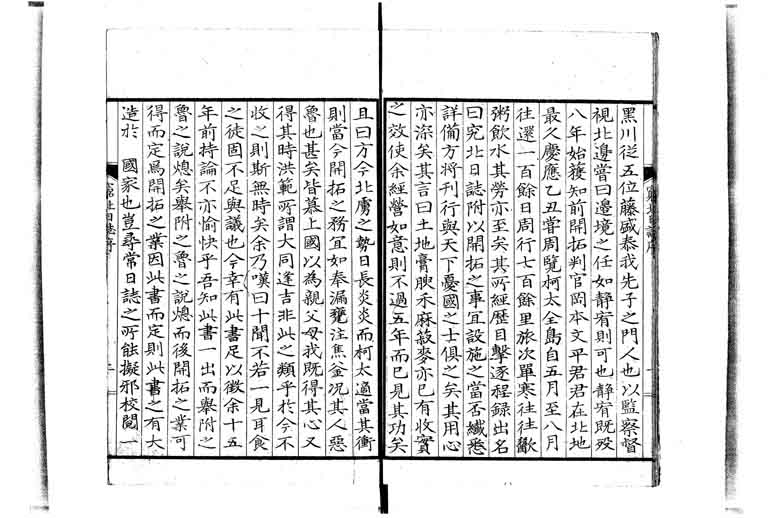 黑川從五位藤盛泰我先子之門人也以監察督
視北邊嘗曰邊境之任如靜宥則可也靜宥既歿
八年始獲知前開拓判官岡本文平君君在北地
最久慶應乙丑嘗周覽柯太全島自五月至八月
往還一百餘日周行七百餘里旅次單寒往往歠
粥飲水其勞亦至矣其所經歷目擊逐程錄出名
曰窮北日誌附以開拓之事宜設施之當否纖悉
詳備方將刊行與天下憂國之士俱之矣其用心
亦深矣其言曰土地膏腴禾麻菽麥亦已有收實
之效使余經營如意則不過五年而已見其功矣
且曰方今北虜之勢日長炎炎而柯太適當其衝
則當今開拓之務宜如奉漏甕注焦釜况其人惡
魯也甚矣皆慕上國以為親父母我既得其心又
得其時洪範所謂大同逢吉非此之類乎於今不
收之則斯無時矣余乃嘆曰十聞不若一見耳食
之徒固不足與議也今幸有此書足以徵余十五
年前持論不亦愉快乎吾知此書一出而舉附之
魯之說熄矣舉附之魯之說熄而後開拓之業可
得而定焉開拓之業因此書而定則此書之有大
造於 國家也豈尋常日誌之所能擬邪校閱一
窮北日誌序 一
窮北日誌序 二